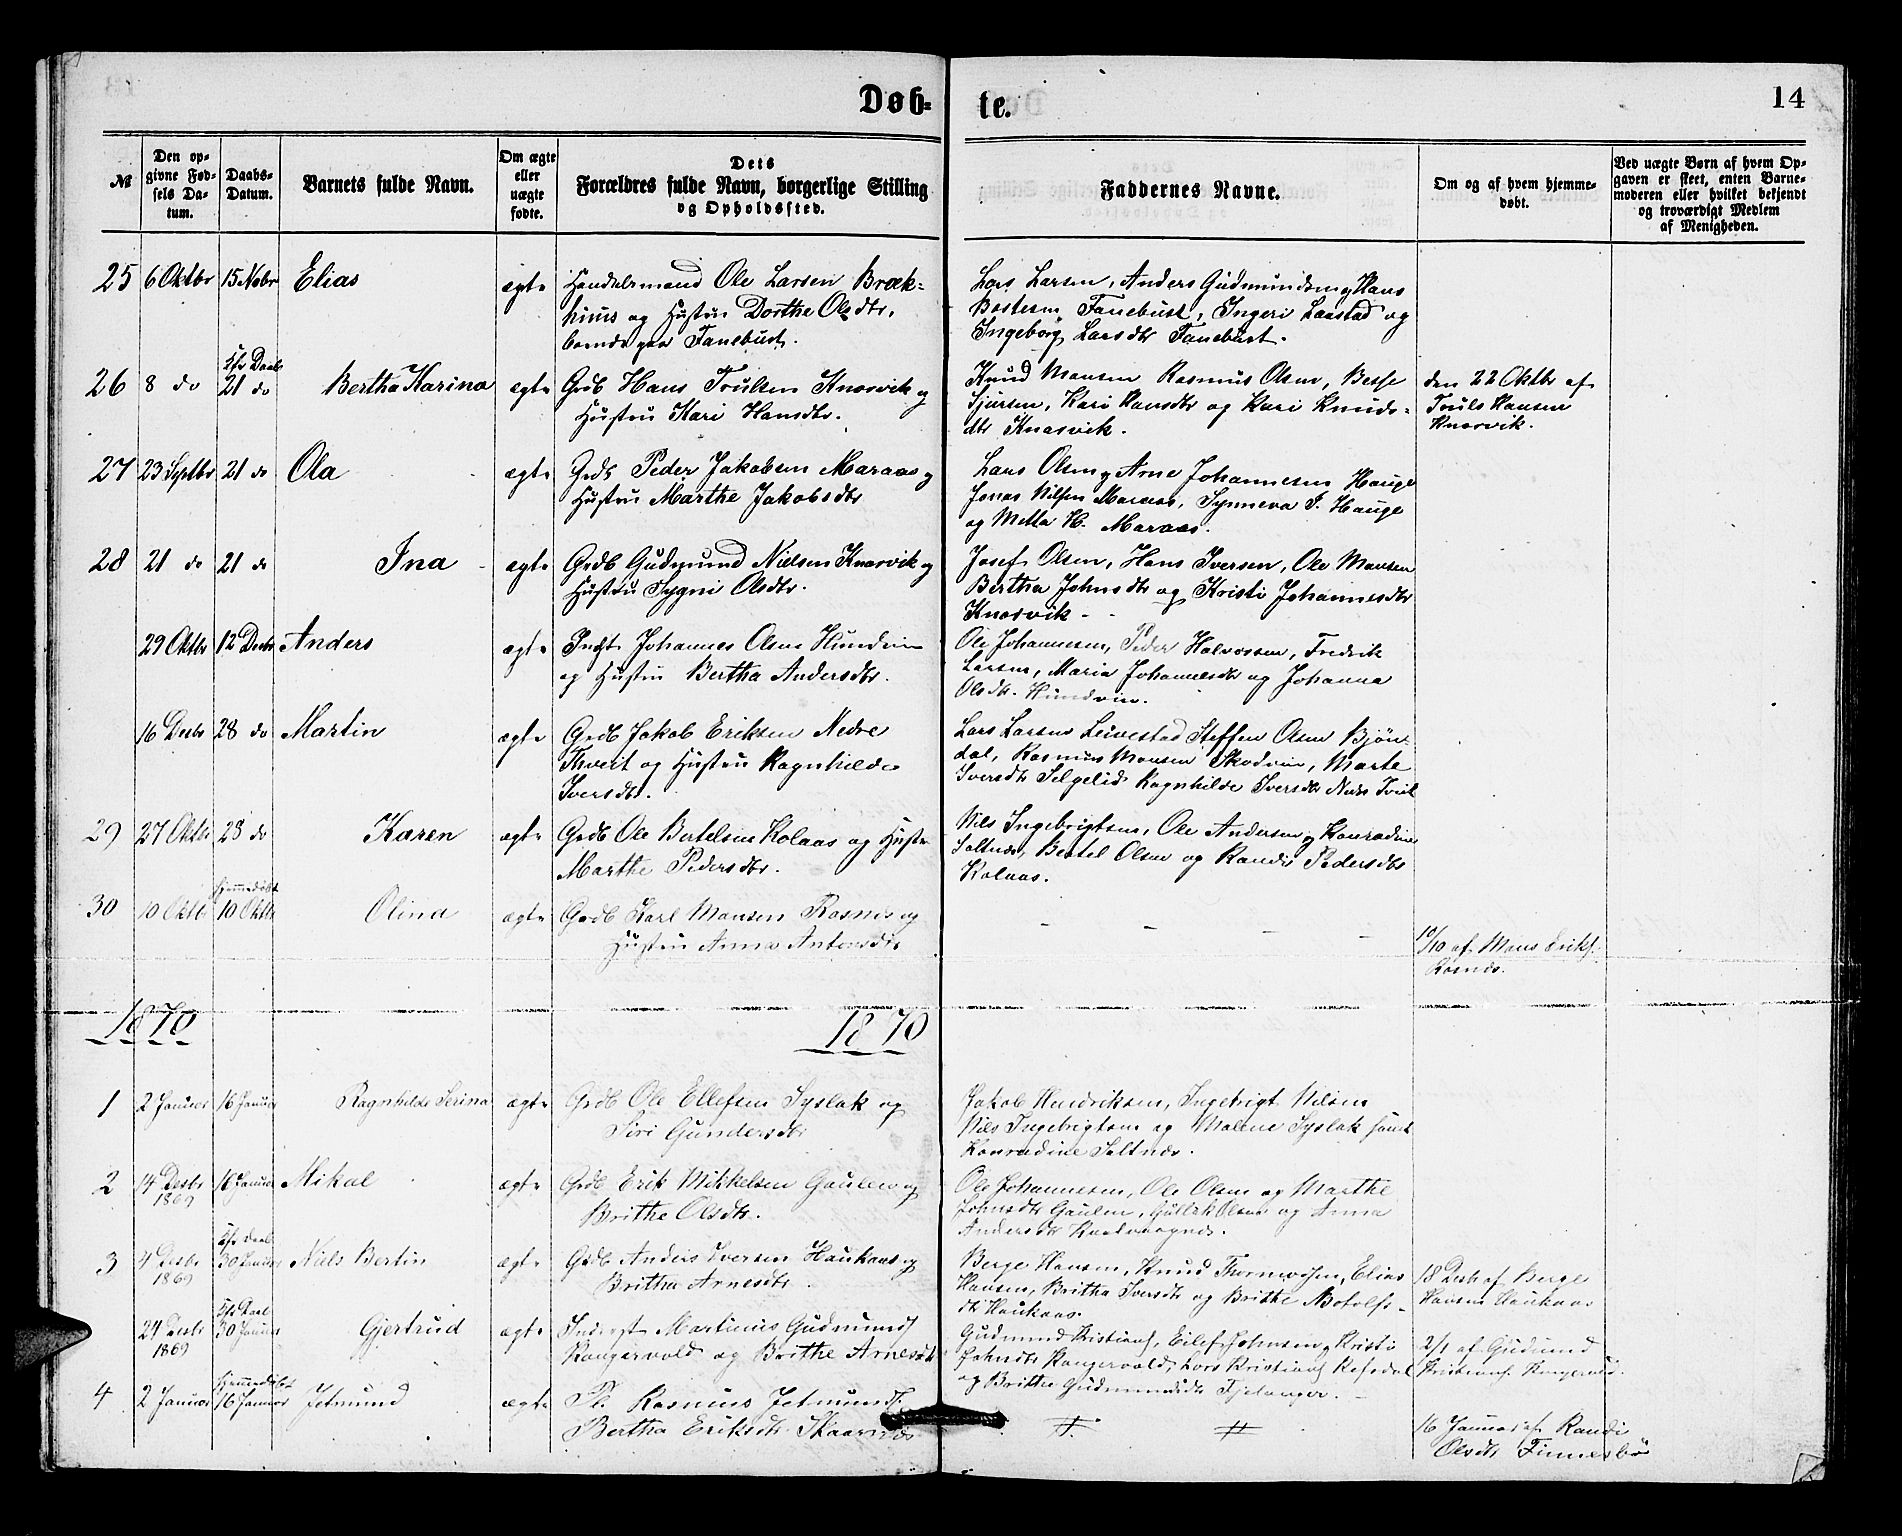 Døb- te.
14
№
Den op-
givne Fød-
sels Da-
tum.
Daabs-
Datum.
Barnets fulde Navn.
Om ægte
eller
uægte
fødte.
Dets
Forældres fulde Navn, borgerlige Stilling
og Opholdssted.
Faddernes Navne.
Om og af hvem hjemme-
døbt.
Ved uægte Børn af hvem Op-
gaven er skeet, enten Barne-
moderen eller hvilket bekjendt
og troværdigt Medlem
af Menigheden.
25 6 Oktbr 15 Nobr Elias ægte
Handelsmand Ole Larsen Bræk-
huus og Hustru Dorthe Olsdtr.
boende paa Fanebust.
Lars Larsen, Anders Gudmundsen og Hans
Fanebust, Ingeri Laastad og
Ingeborg Larsdtr Fanebust.
26 8 do 21 do Bertha Karina ægte
Grdb Hans Trulsen Knarvik og
Hustru Kari Hansdtr.
Knud Monsen Rasmus Olsen, Besse
Sjursen, Kari Hansdtr og Kari Knuds-
dtr Knarvik.
den 22 Oktbr af
Truls Hansen
Knarvik.
27 23 Septbr 21 do Ola ægte
Grdb Peder Jakobsen Maraas og
Hustru Marthe Jakobsdtr
Lars Olsen og Arne Johannesen Hauge
Jonas Nilsen Maraas, Synneva J. Hauge
og Metta H. Maraas.
28 21 do 21 do Ina ægte
Grdb Gudmund Nielsen Knarvik og
Hustru Sygni Olsdtr.
Josef Olsen, Hans Iversen, Ole Monsen
Bertha Johnsdtr og Kristi Johannesdtr
Knarvik
29 Oktbr 12 Decbr Anders ægte
Johannes Olsen Hundvin
og Hustru Bertha Andersdtr.
Ole Johannesen, Peder Halvorsen, Fredrik
Larsen, Maria Johannesdtr og Johanna
Olsdtr. Hundvin.
16 Desbr 28 do Martin ægte
Grdb Jakob Eriksen Nedre
Thveit og Hustru Ragnhilde
Iversdtr.
Lars Larsen Leivestad Steffen Olsen Bjøn-
dal, Rasmus Monsen Skodvin, Marte
Iversdtr Selgelid Ragnhilde Iversdtr Nedre Tveit
29 27 Oktbr 28 do Karen ægte
Grdb Ole Bertelsen Kolaas og Hustru
Marthe Pedersdtr.
Nils Ingebrigtsen, Ole Andersen og Konradine
Saltnæs, Bertel Olsen og Randi Pedersdtr
Kolaas.
30 10 Oktbr hjemmedøbt
10 Oktbr Olina ægte
Grdb Karl Monsen Rosnes og
Hustru Anna Antonsdtr
- - - -
10/10 af Mons Eriks.
Rosnes.
1870 1870
1 2 Januar 16 Januar Ragnhilde Serina ægte
Grdb Ole Ellefsen Syslak og
Siri Gundersdtr
Jakob Hendriksen, Ingebrigt Nilsen
Nils Ingebrigtsen og Malene Syslak samt
Konradine Saltnæs.
2 14 Desbr
1869 16 Januar Mikal ægte
Grdb Erik Mikkelsen Gaulen og
Brithe Olsdtr.
Ole Johannesen, Ole Olsen og Marthe
Johnsdtr Gaulen, Olsen og Anna
Andersdtr
3 4 Desbr
1869 30 Januar Nils Bertin ægte
Grdb Anders Iversen Haukaas og
Britha Arnesdtr.
Berge Hansen, Knud Elias
Hansen, Britha Iversdtr og Brithe Botolfs-
dtr Haukaas.
18 Desb af Berge
Hansen Haukaas
24 Desbr
1869 30 Januar Gjertrud ægte
Martinus Gudmunds
Rangervold og Brithe Arnesdtr
Gudmund Kristians, Eilef Johnsen og Kristi
Johnsdtr Rangervold, Lars Kristians
og Brithe Gudmundsdtr Fjelanger.
2/1 af Gudmund
Kristians.
4 2 Januar hjemmedøbt
16 Januar Jetmund ægte
Pl. Rasmus Jetmunds.
Bertha Eriksdtr Skaarnæs
16 Januar af Randi
Olsdtr Finnesbø